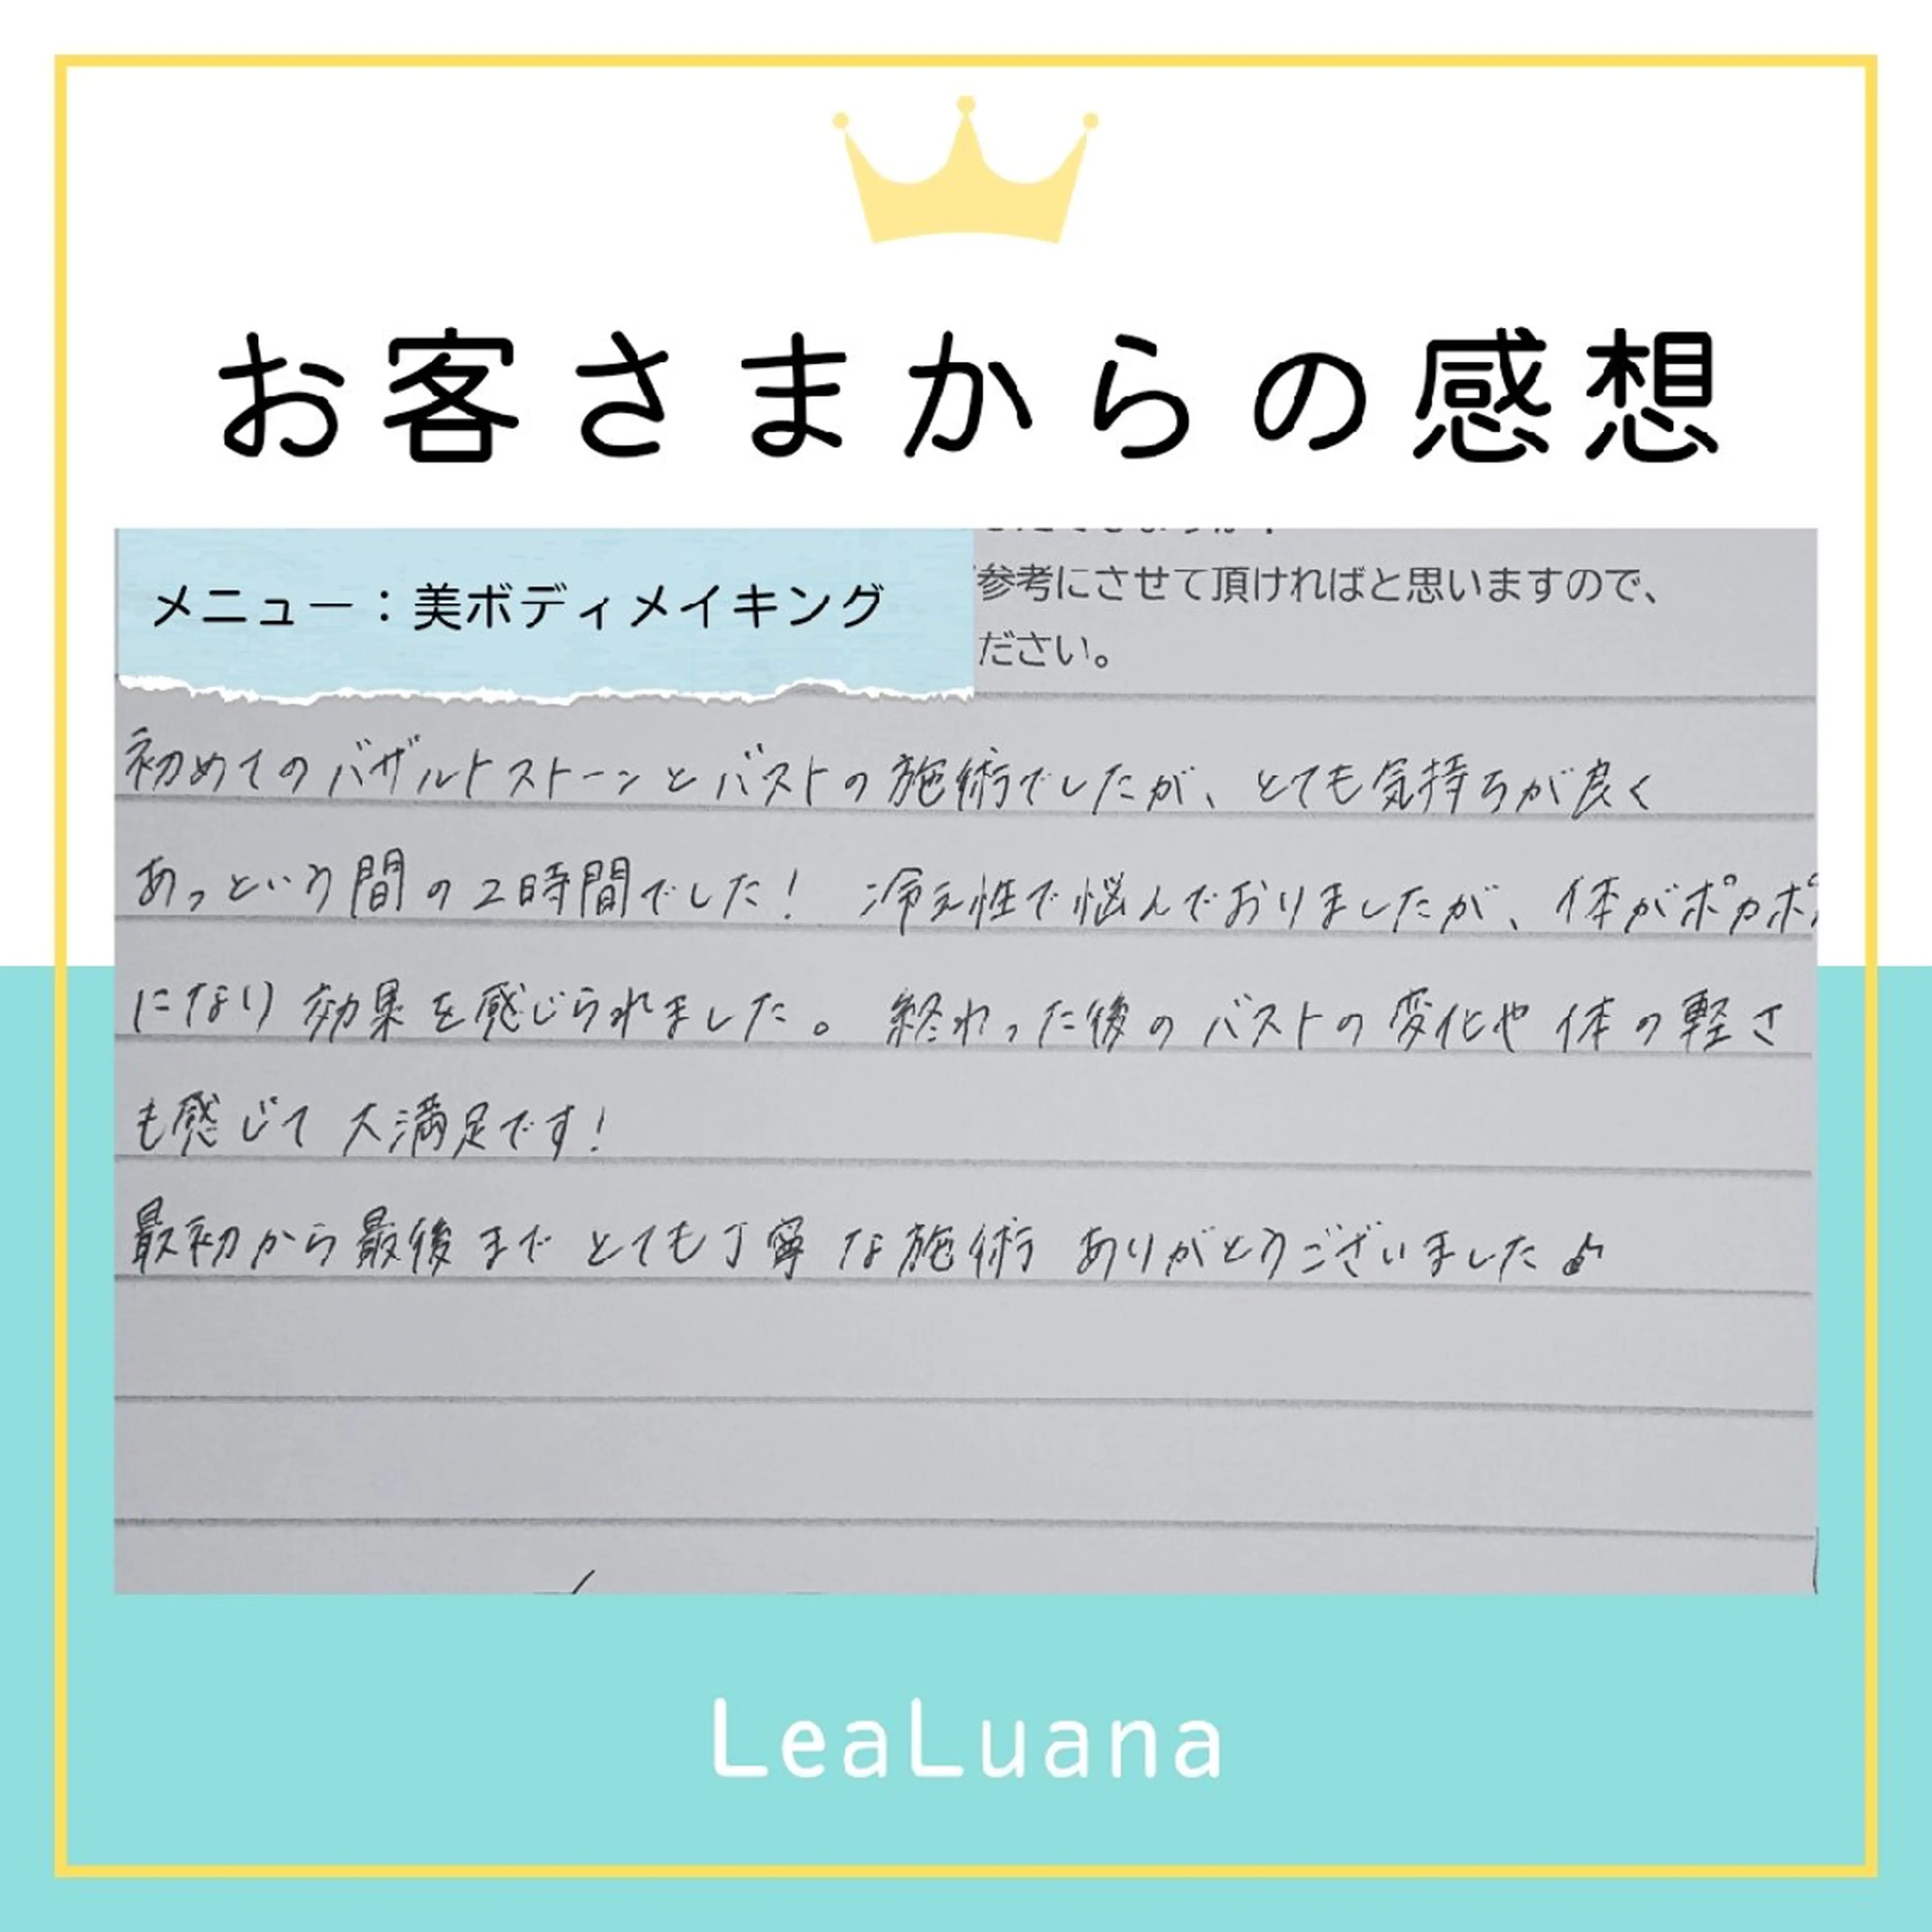 お客さまからの感想
メニュー：美ボディメイキング
参考にさせて頂ければと思いますので、
ださい。
初めてのバザルトストーンとバストの施術でしたが、とても気持ちが良く
あっという間の2時間でした！ 冷え性で悩んでおりましたが、体がポカポ
になり 効果を感じられました。 終わった後のバストの変化や体の軽さ
も感じて大満足です！
最初から最後までとても丁寧な施術 ありがとうございました♪
LeaLuana